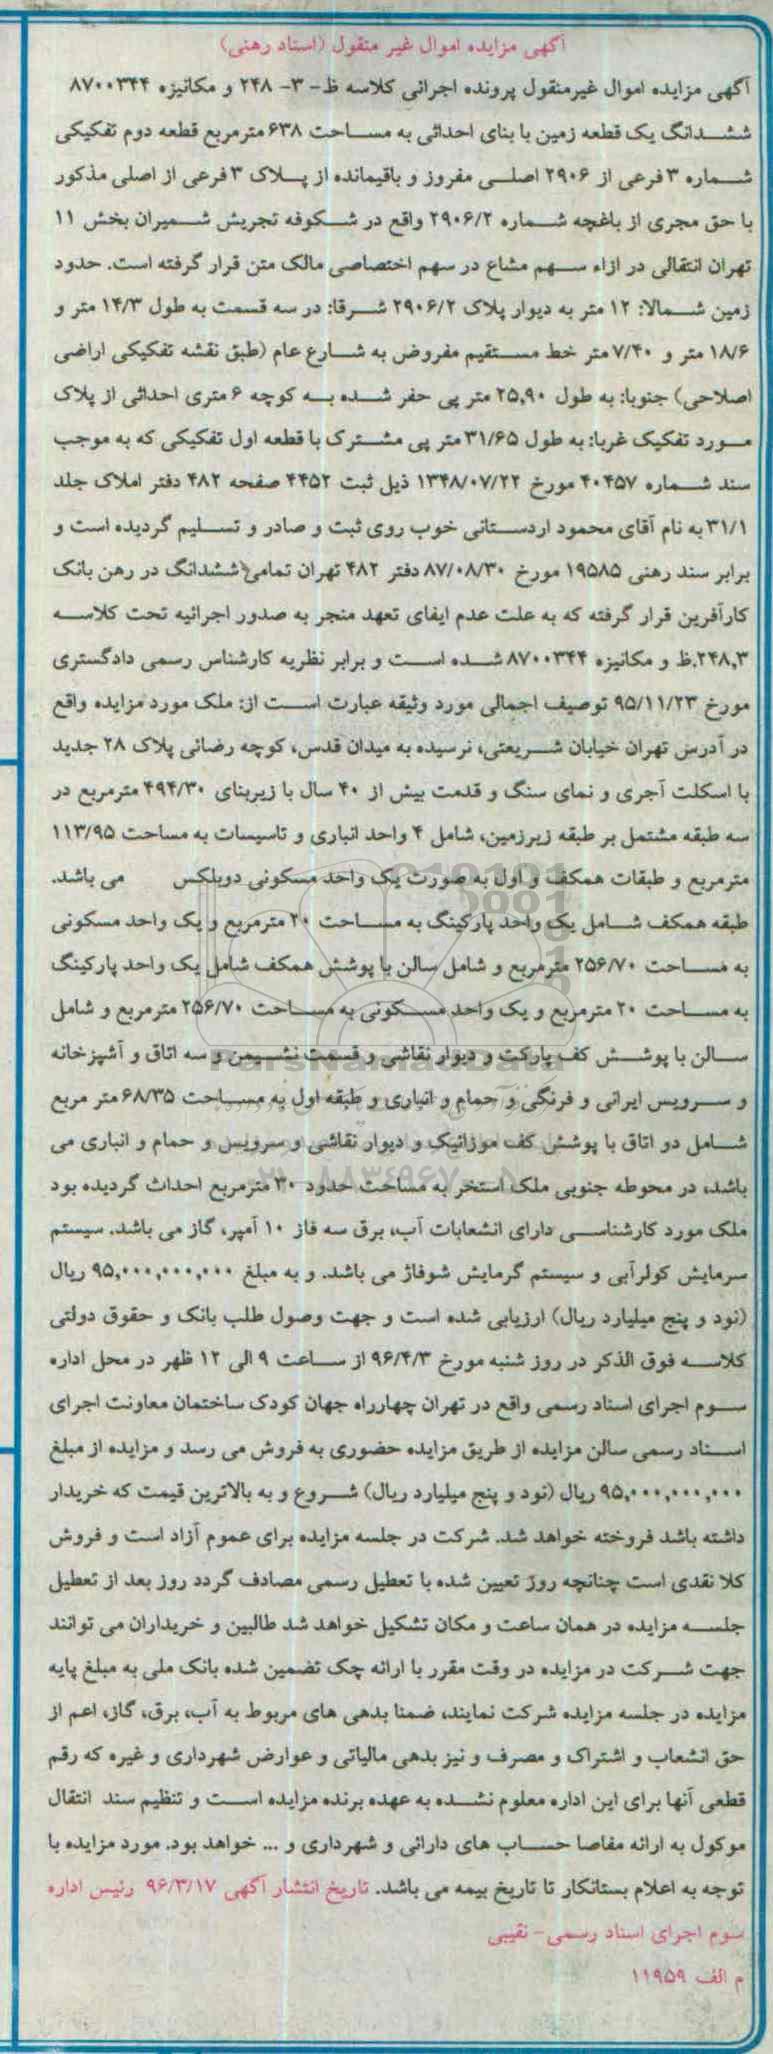 آگهی مزایده اموال غیر منقول (اسناد رهنی)
آگهی مزایده اموال غیرمنقول پرونده اجرائی کلاسه ظ- ۳- ۲۴۸ و مکانیزه ۸۷۰۰۳۴۴
ششدانگ یک قطعه زمین با بنای احداثی به مساحت ۶۳۸ مترمربع قطعه دوم تفکیکی
شماره ۳ فرعی از ۲۹۰۶ اصلی مفروز و باقیمانده از پلاک ۳ فرعی از اصلی مذکور
با حق مجری از باغچه شماره ۲۹۰۶/۲ واقع در شکوفه تجریش شمیران بخش ۱۱
تهران انتقالی در ازاء سهم مشاع در سهم اختصاصی مالک متن قرار گرفته است. حدود
زمین شمالا: ۱۲ متر به دیوار پلاک ۲۹۰۶/۲ شرقا: در سه قسمت به طول ۱۴/۳ متر و
۱۸/۶ متر و ۷/۴۰ متر خط مستقیم مفروض به شارع عام (طبق نقشه تفکیکی اراضی
اصلاحی) جنوبا: به طول ۲۵,۹۰ متر پی حفر شده به کوچه ۶ متری احداثی از پلاک
مورد تفکیک غربا: به طول ۳۱/۶۵ متر پی مشترک با قطعه اول تفکیکی که به موجب
سند شماره ۴۰۴۵۷ مورخ ۱۳۴۸/۰۷/۲۲ ذیل ثبت ۴۴۵۲ صفحه ۴۸۲ دفتر املاک جلد
۳۱/۱ به نام آقای محمود اردستانی خوب روی ثبت و صادر و تسلیم گردیده است و
برابر سند رهنی ۱۹۵۸۵ مورخ ۸۷/۰۸/۳۰ دفتر ۴۸۲ تهران تمامی ششدانگ در رهن بانک
کارآفرین قرار گرفته که به علت عدم ایفای تعهد منجر به صدور اجرائیه تحت کلاسه
۲۴۸,۳.ظ و مکانیزه ۸۷۰۰۳۴۴ شده است و برابر نظریه کارشناس رسمی دادگستری
مورخ ۹۵/۱۱/۲۳ توصیف اجمالی مورد وثیقه عبارت است از: ملک مورد مزایده واقع
در آدرس تهران خیابان شریعتی، نرسیده به میدان قدس، کوچه رضائی پلاک ۲۸ جدید
با اسکلت آجری و نمای سنگ و قدمت بیش از ۴۰ سال با زیربنای ۴۹۴/۳۰ مترمربع در
سه طبقه مشتمل بر طبقه زیرزمین، شامل ۴ واحد انباری و تاسیسات به مساحت ۱۱۳/۹۵
مترمربع و طبقات همکف و اول به صورت یک واحد مسکونی دوبلکس می باشد.
طبقه همکف شامل یک واحد پارکینگ به مساحت ۲۰ مترمربع و یک واحد مسکونی
به مساحت ۲۵۶/۷۰ مترمربع و شامل سالن با پوشش همکف شامل یک واحد پارکینگ
به مساحت ۲۰ مترمربع و یک واحد مسکونی به مساحت ۲۵۶/۷۰ مترمربع و شامل
سالن با پوشش کف پارکت و دیوار نقاشی و قسمت نشیمن و سه اتاق و آشپزخانه
ParsNamadData
و سرویس ایرانی و فرنگی و حمام و انباری و طبقه اول به مساحت ۶۸/۳۵ متر مربع
شامل دو اتاق با پوشش کف موزائیک و دیوار نقاشی و سرویس و حمام و انباری می
باشد، در محوطه جنوبی ملک استخر به مساحت حدود ۳۰ مترمربع احداث گردیده بود
ملک مورد کارشناسی دارای انشعابات آب، برق سه فاز ۱۰ آمپر، گاز می باشد. سیستم
سرمایش کولرآبی و سیستم گرمایش شوفاژ می باشد. و به مبلغ ۹۵,۰۰۰,۰۰۰,۰۰۰ ریال
(نود و پنج میلیارد ریال) ارزیابی شده است و جهت وصول طلب بانک و حقوق دولتی
کلاسه فوق الذکر در روز شنبه مورخ ۹۶/۴/۳ از ساعت ۹ الی ۱۲ ظهر در محل اداره
سوم اجرای اسناد رسمی واقع در تهران چهارراه جهان کودک ساختمان معاونت اجرای
اسناد رسمی سالن مزایده از طریق مزایده حضوری به فروش می رسد و مزایده از مبلغ
۹۵,۰۰۰,۰۰۰,۰۰۰ ریال (نود و پنج میلیارد ریال) شروع و به بالاترین قیمت که خریدار
داشته باشد فروخته خواهد شد. شرکت در جلسه مزایده برای عموم آزاد است و فروش
کلا نقدی است چنانچه روز تعیین شده با تعطیل رسمی مصادف گردد روز بعد از تعطیل
جلسه مزایده در همان ساعت و مکان تشکیل خواهد شد طالبین و خریداران می توانند
جهت شرکت در مزایده در وقت مقرر با ارائه چک تضمین شده بانک ملی به مبلغ پایه
مزایده در جلسه مزایده شرکت نمایند، ضمنا بدهی های مربوط به آب، برق، گاز، اعم از
حق انشعاب و اشتراک و مصرف و نیز بدهی مالیاتی و عوارض شهرداری و غیره که رقم
قطعی آنها برای این اداره معلوم نشده به عهده برنده مزایده است و تنظیم سند انتقال
موکول به ارائه مفاصا حساب های دارائی و شهرداری و ... خواهد بود. مورد مزایده با
توجه به اعلام بستانکار تا تاریخ بیمه می باشد. تاریخ انتشار آگهی ۹۶/۳/۱۷ رئیس اداره
سوم اجرای اسناد رسمی- نقیبی
م الف ۱۱۹۵۹